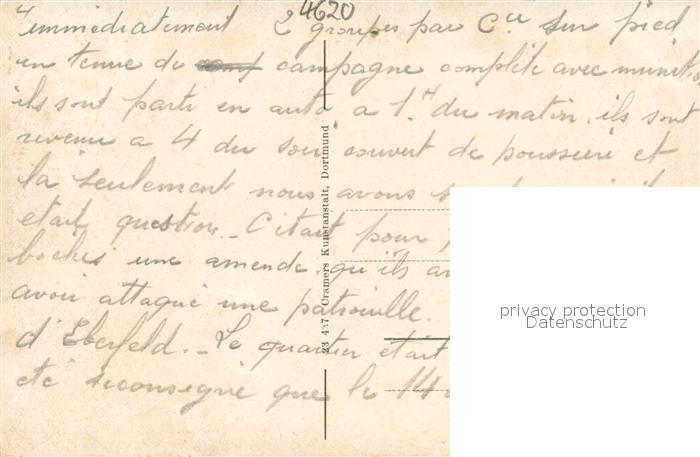 4620
immédiatement 2 groupes par Cie sur pied
en tenue de campagne complète avec munit
ils sont parti en auto a 1 H du matin. ils sont
revenu a 4 du soir couvert de poussière et
la seulement nous avons
etait question. C'était pour
boches une amende qu'ils
avoir attaqué une patrouille.
d'Eberfeld. - Le quartier était
eté déconsigné que le 14
23 437 Cramers Kunstanstalt, Dortmund
privacy protection
Datenschutz